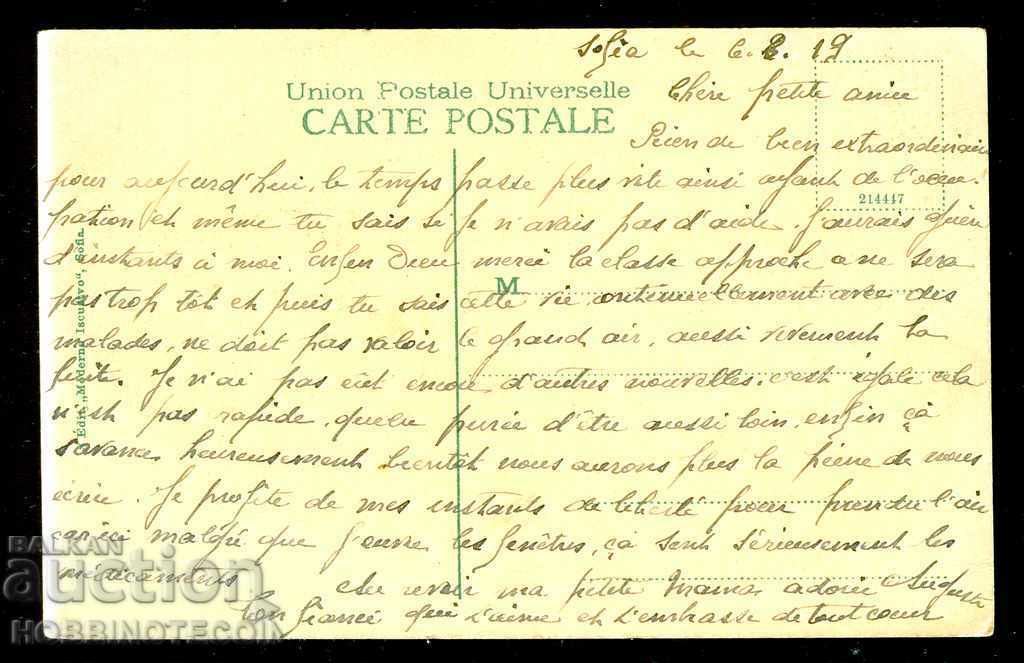 Sofia le 6.2.19
Union Postale Universelle
CARTE POSTALE
Chère petite amie
Rien de bien extraordinaire
pour aujourd'hui, le temps passe plus vite ainsi ayant de l'occu-
214447
pation et même tu sais si je n'avais pas d'aide j'aurais guère
d'instants à moi. Enfin Dieu merci la classe approche ce ne sera
pas trop tôt et puis tu sais cette vie continuellement avec des
M
malades, ne doit pas valoir le grand air, aussi vivement la
fuite. Je n'ai pas eût encore d'autres nouvelles. c'est égale cela
n'est pas rapide, d'être aussi loin, enfin çà
s'avance heureusement bientôt nous aurons plus la peine de nous
écrire. Je profite de mes instants de liberté pour prendre l'air
car ici malgré que j'ouvre les fenêtres, çà sent sérieusement les
médicaments.
Au revoir ma petite Mama adorée
Ton fiancé qui t'aime et t'embrasse de tout coeur
Edit. „Moderno Iscustvo“, Sofia.
BALKAN
auction
HOBBINOTECOIN